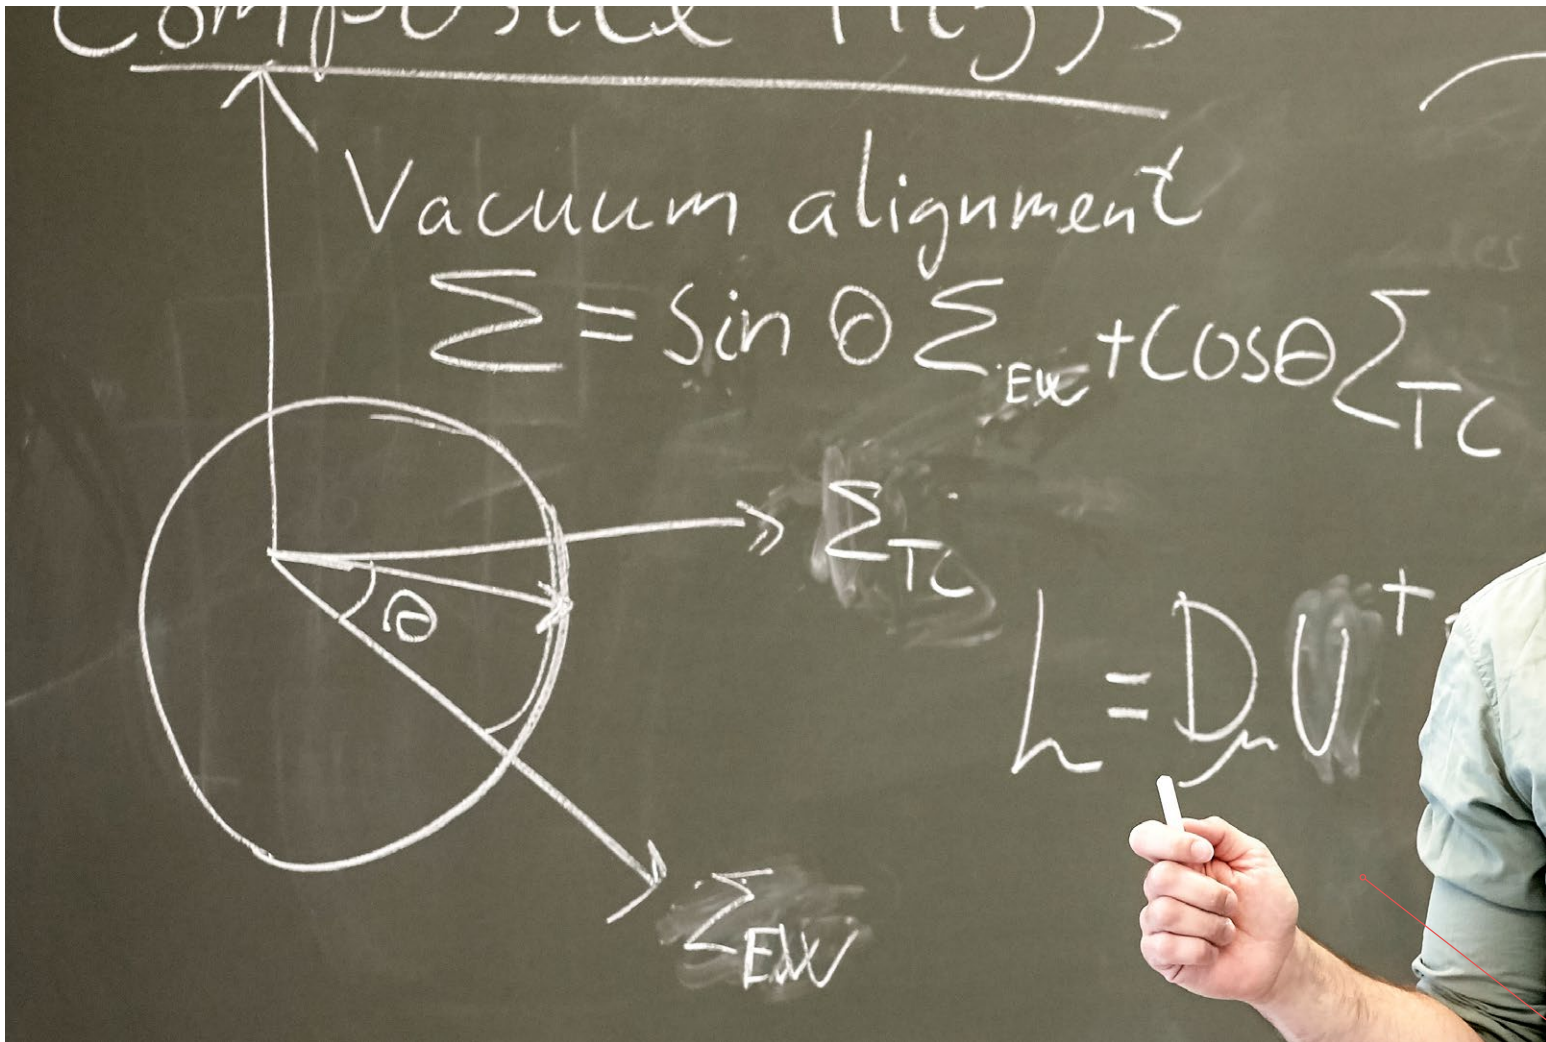 Composite Higgs
Vacuum alignment
Σ = Sin θ Σ_EW + Cosθ Σ_TC
Σ_TC
θ
L = D_μ U^+
Σ_EW